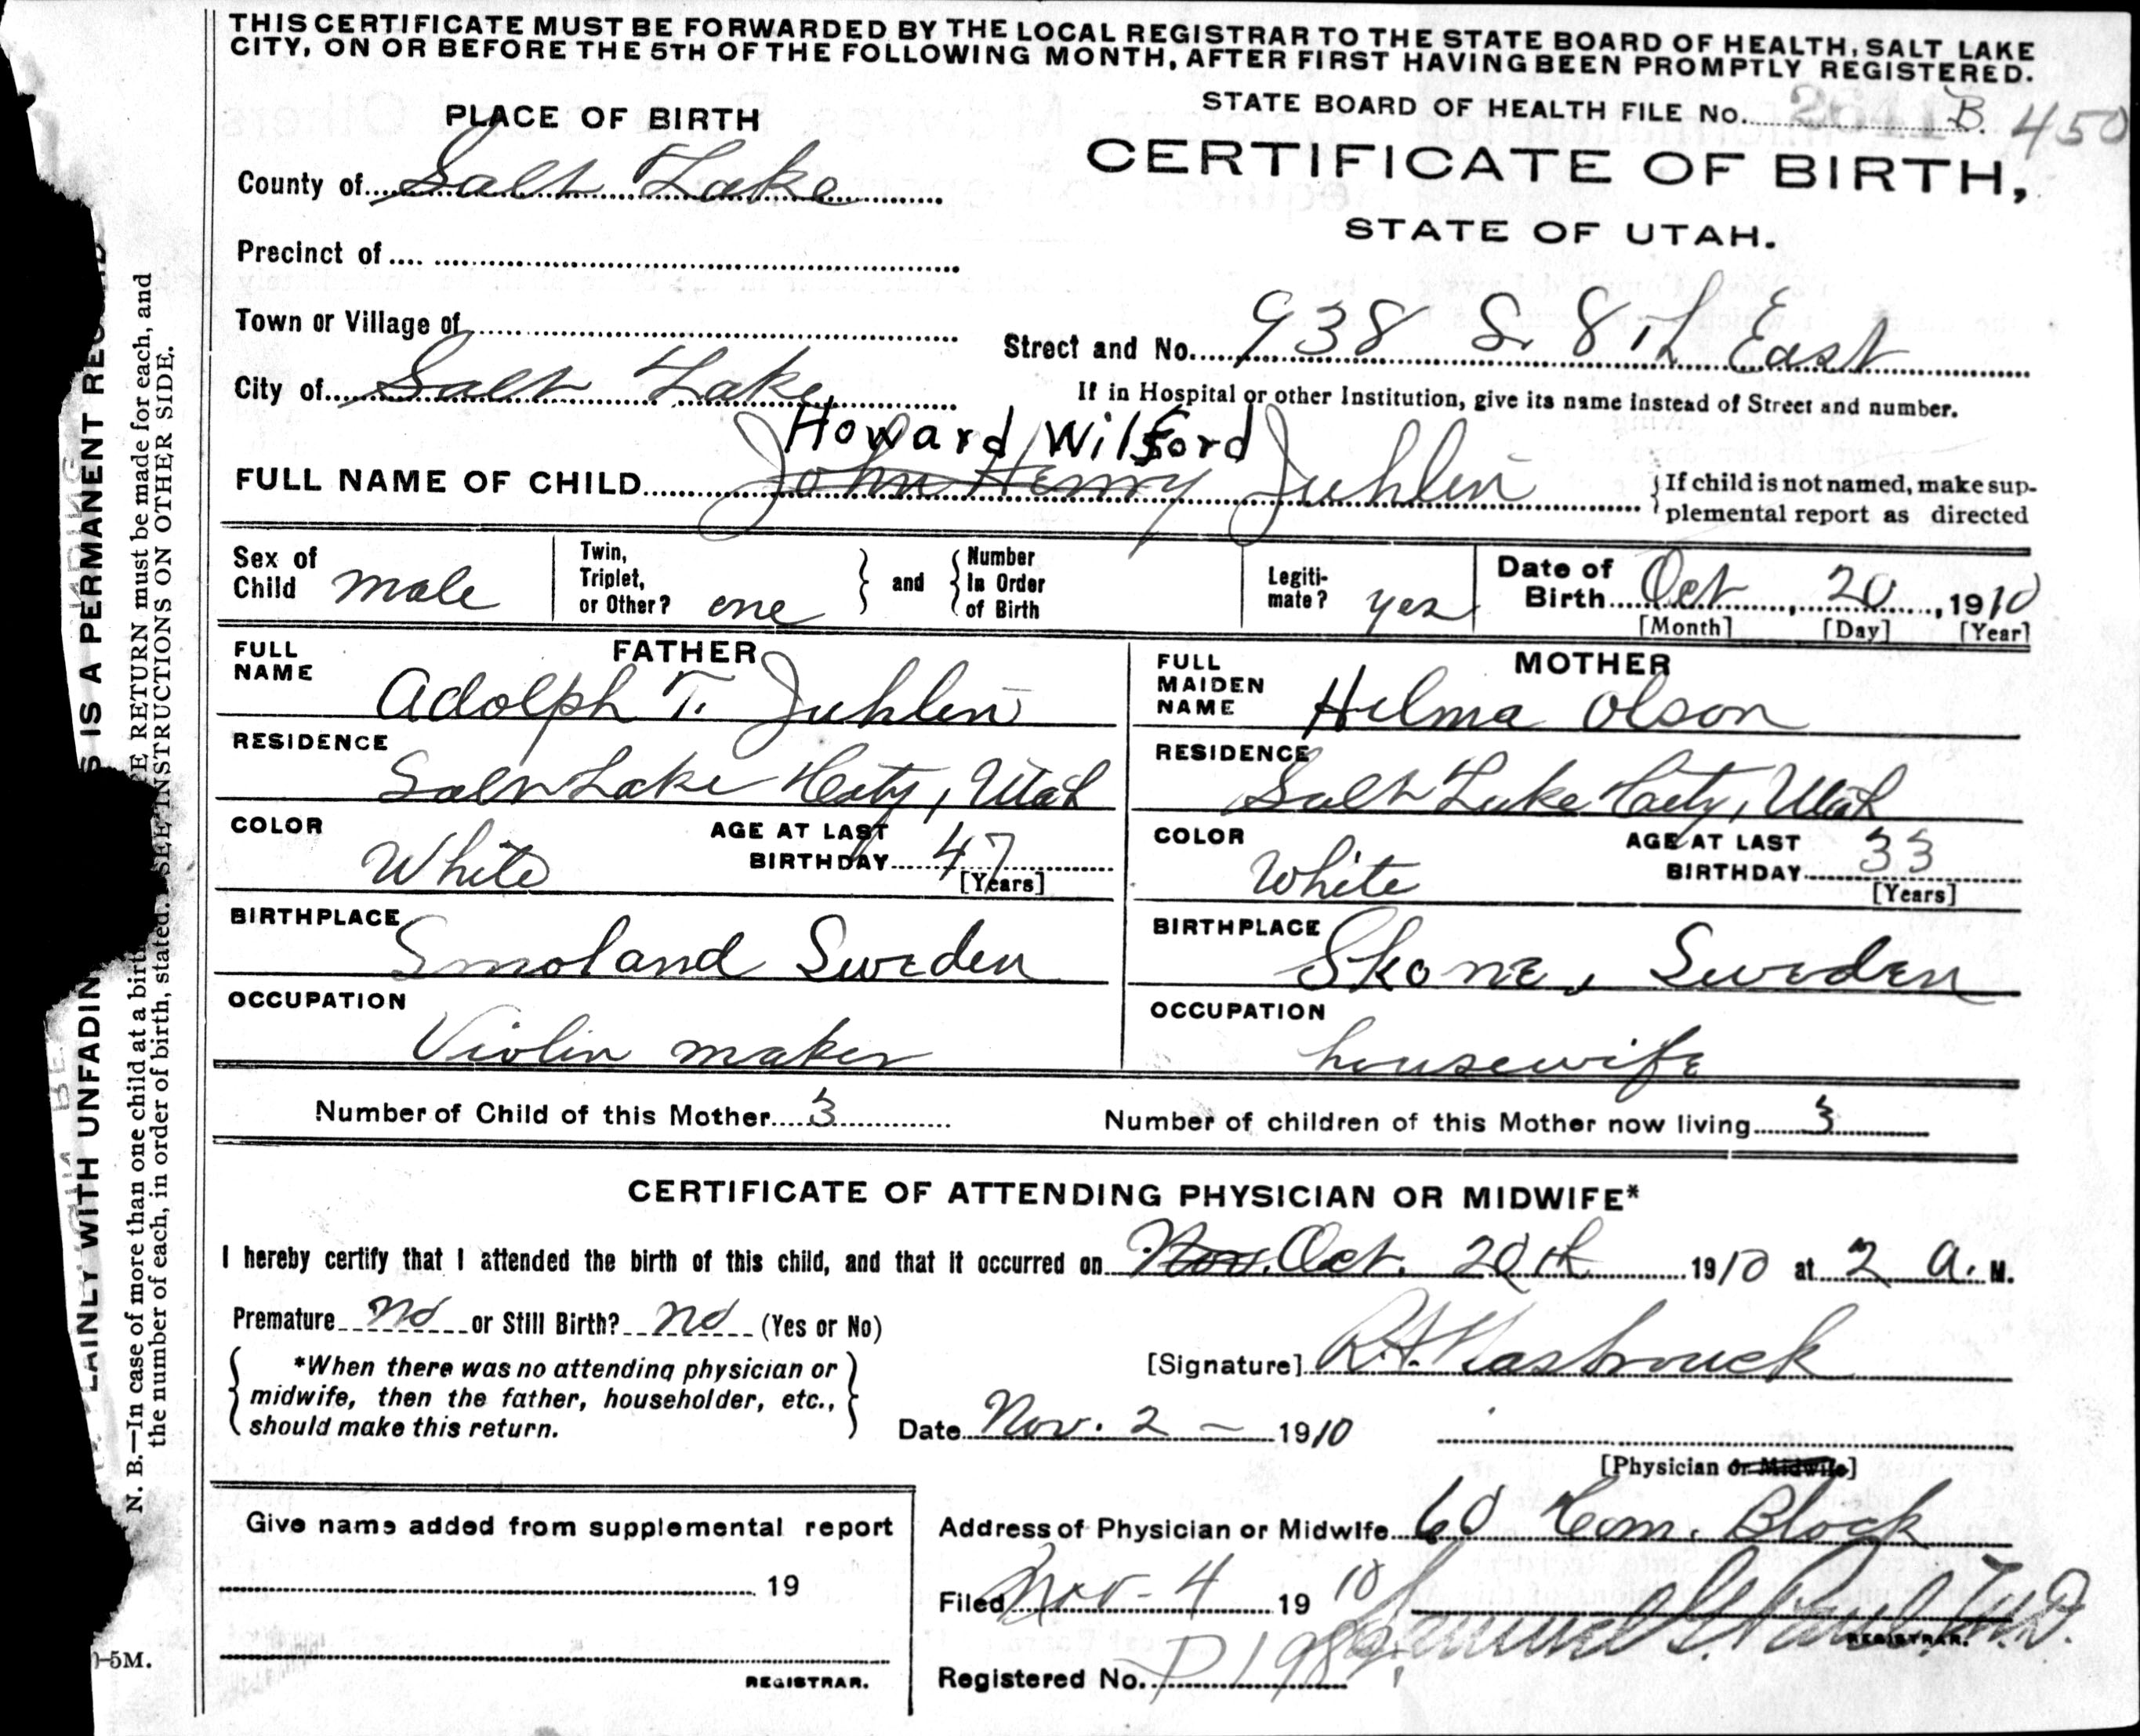 THIS CERTIFICATE MUST BE FORWARDED BY THE LOCAL REGISTRAR TO THE STATE BOARD OF HEALTH, SALT LAKE
CITY, ON OR BEFORE THE 5TH OF THE FOLLOWING MONTH, AFTER FIRST HAVING BEEN PROMPTLY REGISTERED.
STATE BOARD OF HEALTH FILE No. B. 450
CERTIFICATE OF BIRTH,
STATE OF UTAH.
PLACE OF BIRTH
County of Salt Lake
Precinct of
Town or Village of
City of Salt Lake
Street and No. 938 S. 8th East
If in Hospital or other Institution, give its name instead of Street and number.
Howard Wilford
FULL NAME OF CHILD John Henry Juhlin
If child is not named, make sup-
plemental report as directed
Sex of Child male
Twin, Triplet, or Other? one
and Number In Order of Birth
Legiti-mate? yes
Date of Birth Oct, 20, 1910
[Month] [Day] [Year]
FATHER
FULL NAME Adolph T. Juhlin
RESIDENCE Salt Lake City, Utah
COLOR White
AGE AT LAST BIRTHDAY 47
[Years]
BIRTHPLACE Smoland Sweden
OCCUPATION Violin maker
MOTHER
FULL MAIDEN NAME Hilma Olson
RESIDENCE Salt Lake City, Utah
COLOR White
AGE AT LAST BIRTHDAY 33
[Years]
BIRTHPLACE Skone, Sweden
OCCUPATION housewife
Number of Child of this Mother 3
Number of children of this Mother now living 3
CERTIFICATE OF ATTENDING PHYSICIAN OR MIDWIFE*
I hereby certify that I attended the birth of this child, and that it occurred on Nov. Oct. 20th 1910 at 2 a. M.
Premature no or Still Birth? no (Yes or No)
*When there was no attending physician or
midwife, then the father, householder, etc.,
should make this return.
[Signature] R.A. Hasbrouck
Date Nov. 2 - 1910
[Physician or Midwife]
Give name added from supplemental report
19
REGISTRAR.
Address of Physician or Midwife 60 Com. Block
Filed Nov - 4 1910
Samuel G. Paul, M.D.
REGISTRAR.
Registered No.
IS A PERMANENT
LAINLY WITH UNFADIN
N. B.—In case of more than one child at a birth
E RETURN must be made for each, and
the number of each, in order of birth, stated. SEE INSTRUCTIONS ON OTHER SIDE.
-5M.